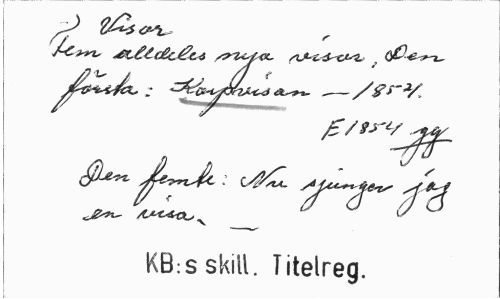 Visor
Fem alldeles nya visor, Den
första: Korpvisan — 1854.
E 1854 gg
Den femte: Nu sjunger jag
en visa. —
KB:s skill. Titelreg.